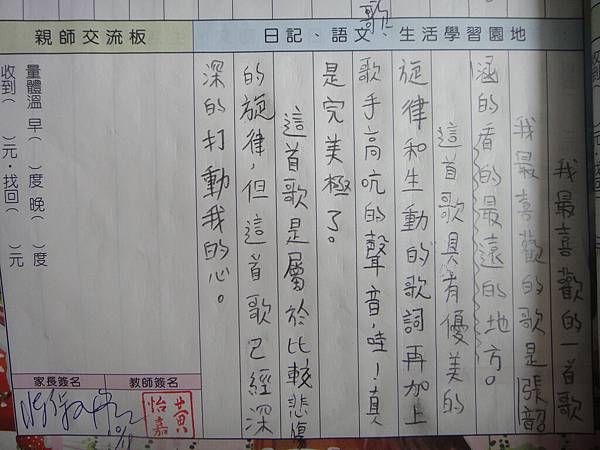 歌
日記、語文、生活學習園地
我最喜歡的一首歌
我最喜歡的歌是張韶
涵的看的最遠的地方。
這首歌具有優美的
旋律和生動的歌詞再加上
歌手高吭的聲音,哇!真
是完美極了。
這首歌是屬於比較悲傷
的旋律,但這首歌已經深
深的打動我的心。
親師交流板
量體溫 早( )度 晚( )度
收到( )元・找回( )元
教師簽名
黃怡嘉
家長簽名